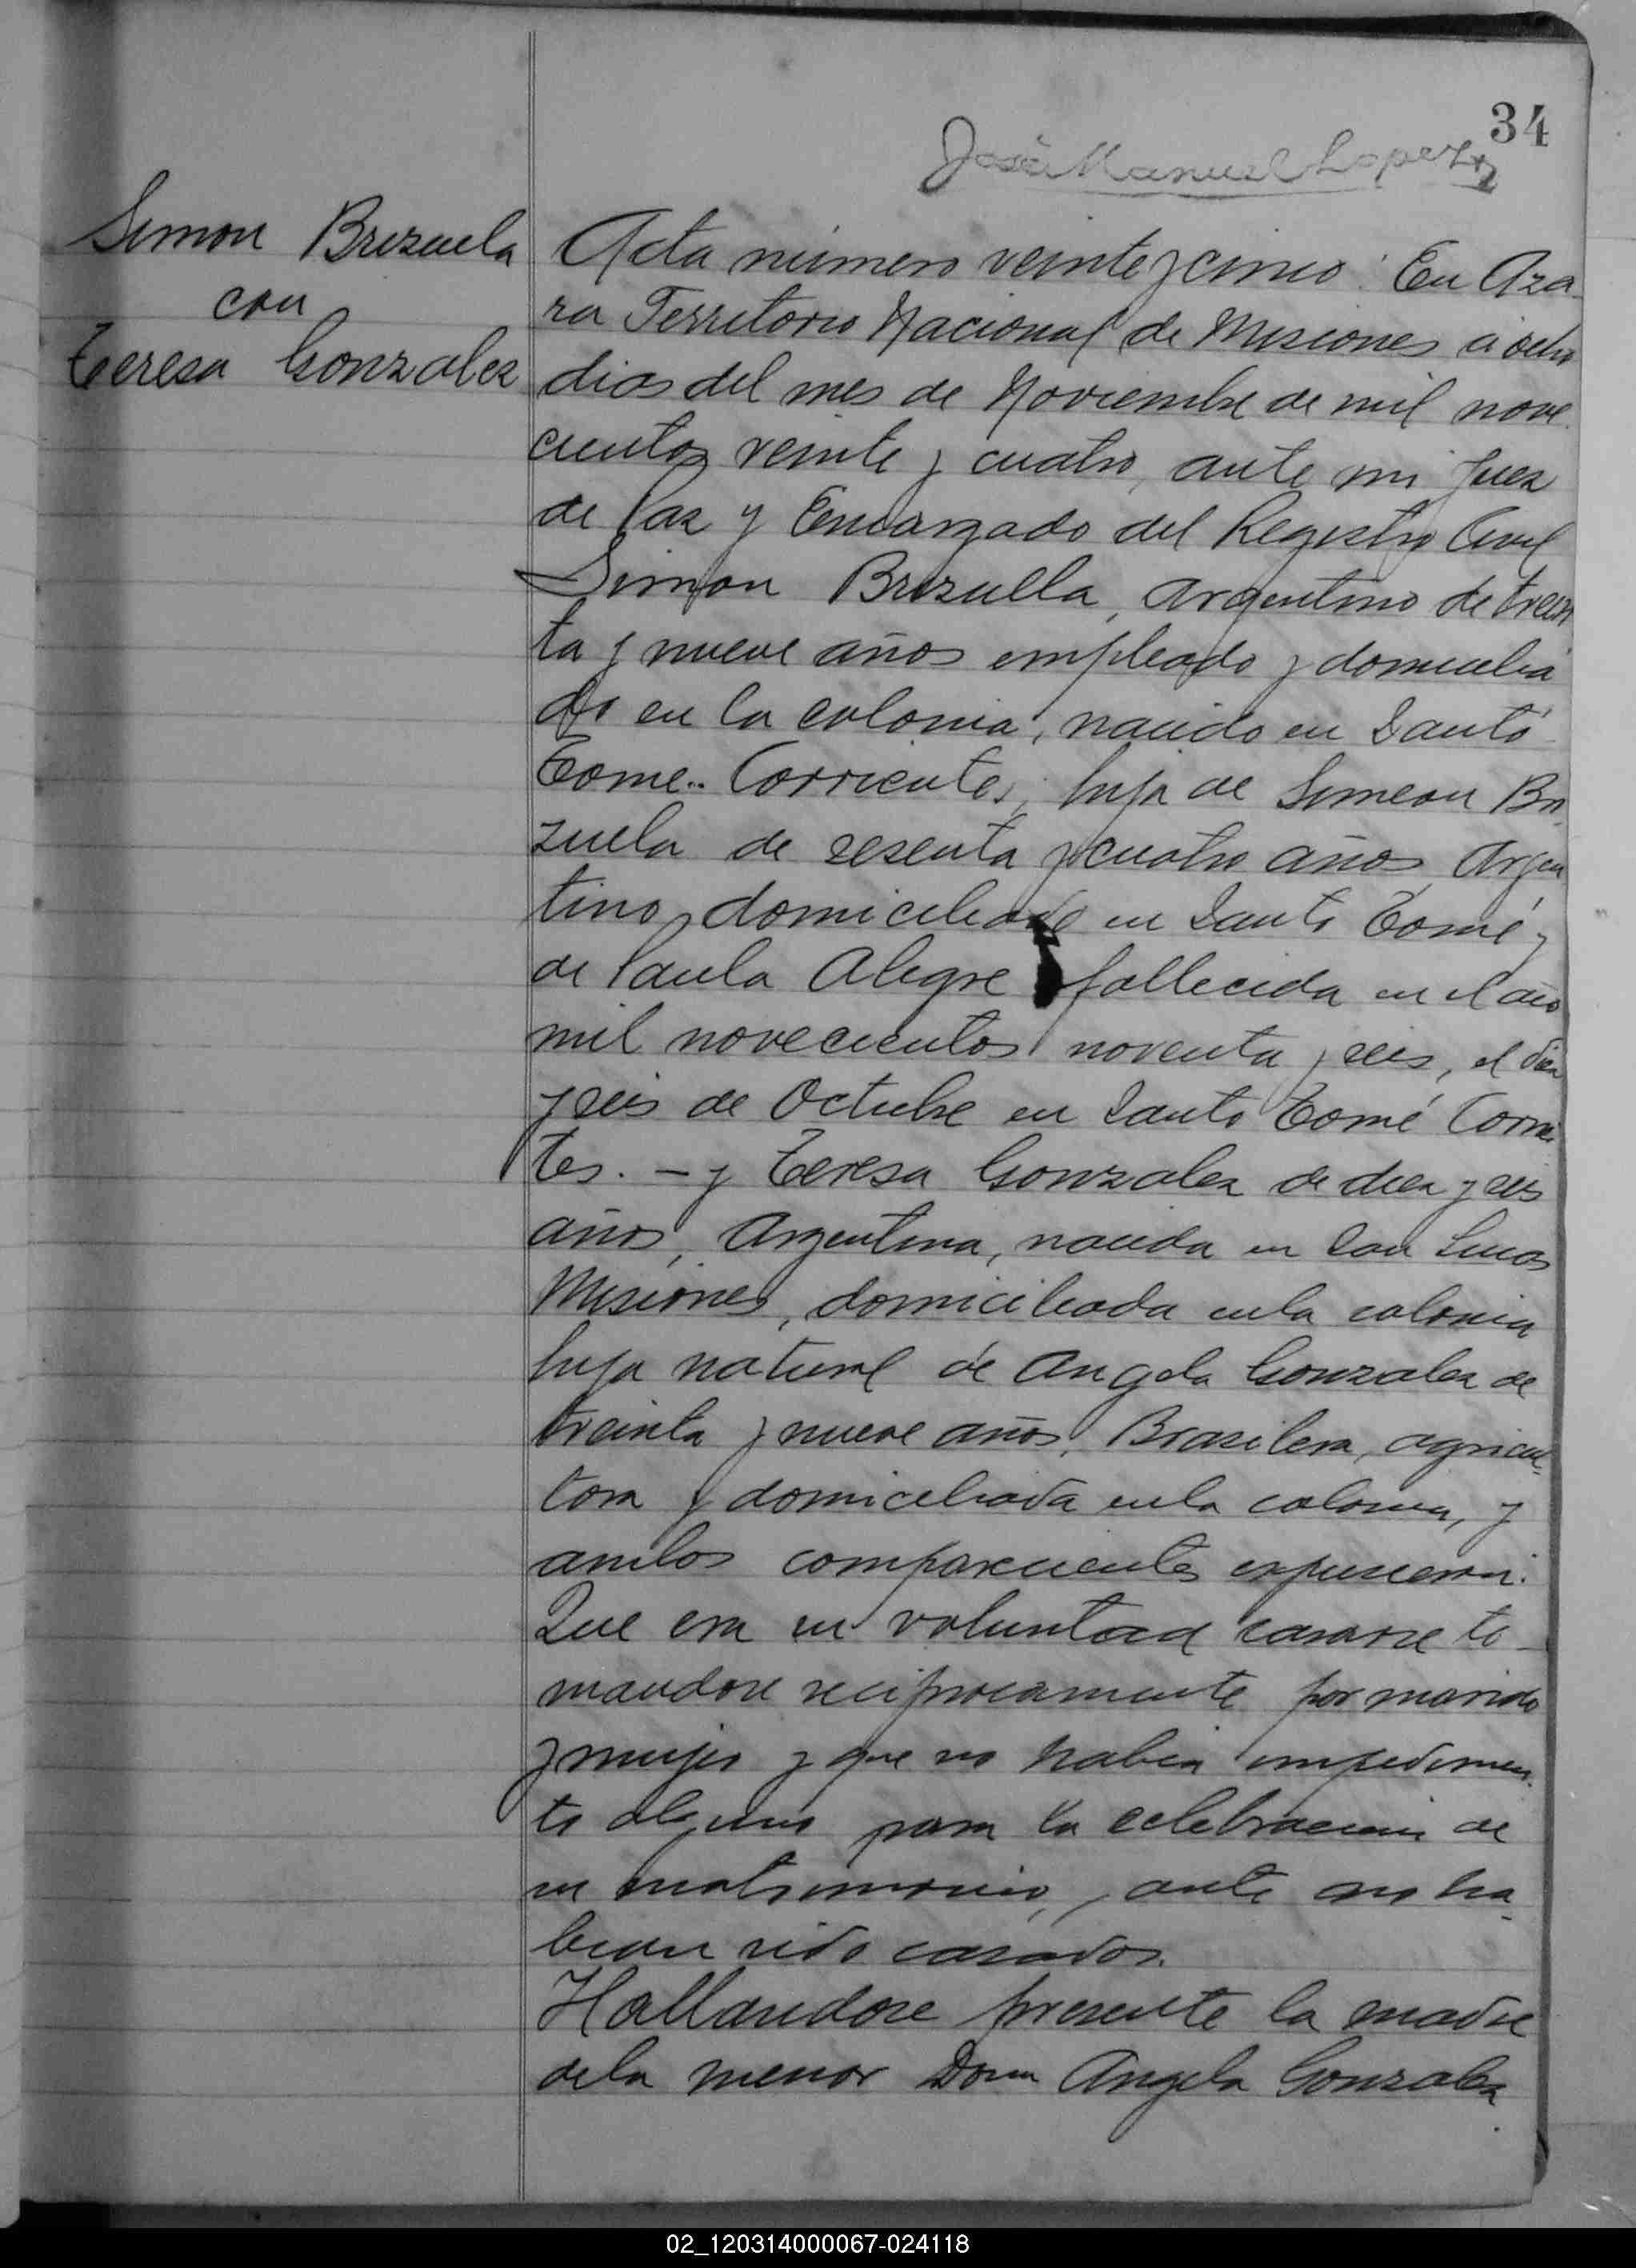 34
José Manuel Lopez
Simon Brizuela
con
Teresa Gonzalez
Acta número veinte y cinco. En Aza-
ra Territorio Nacional de Misiones a ocho
dias del mes de Noviembre de mil nove-
cientos veinte y cuatro, ante mi Juez
de Paz y Encargado del Registro Civil
Simon Brizuella, Argentino de trein
ta y nueve años empleado y domicilia
do en la colonia, nacido en Santo
Tome.. Corrientes, hijo de Simeon Bri
zuela de sesenta y cuatro años Argen
tino, domiciliado en Santo Tomé y
de Paula Alegre fallecida en el año
mil novecientos noventa y seis, el dia
y seis de Octubre en Santo Tomé Corrien
tes. - y Teresa Gonzalez de diez y seis
años, Argentina, nacida en San Lucas
Misiones, domiciliada en la colonia
hija natural de Angela Gonzalez de
treinta y nueve años, Brasilera, agricul-
tora y domiciliada en la colonia, y
ambos comparecientes expusieron:
Que era su voluntad casarse to-
mandose reciprocamente por marido
y mujer y que no habia impedimen-
to alguno para la celebracion de
su matrimonio, ante no ha-
bian sido casados.
Hallandose presente la madre
de la menor Dona Angela Gonzalez
02_120314000067-024118